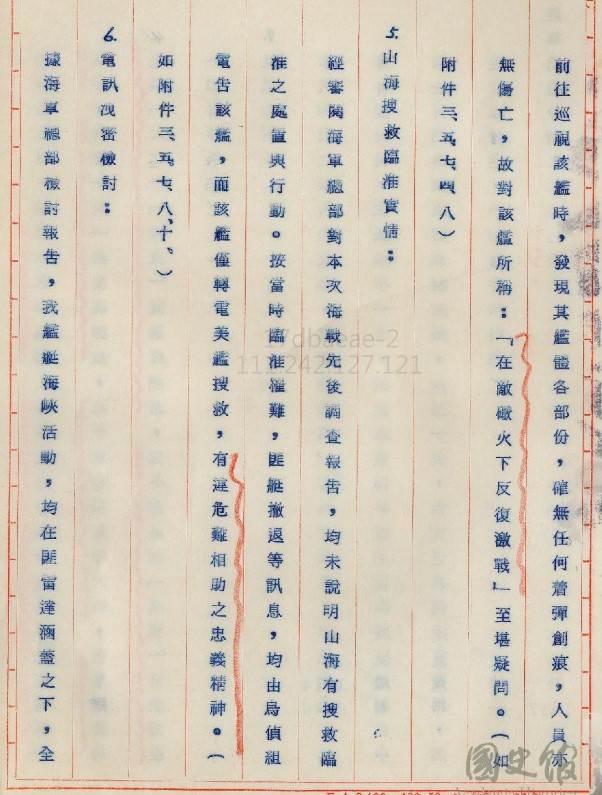 前往巡視該艦時，發現其艦體各部份，確無任何着彈創痕，人員亦
無傷亡，故對該艦所稱：「在敵礮火下反復激戰」至堪疑問。（如
附件三、五、七、四、八）
5.山海搜救臨淮實情：
經審閱海軍總部對本次海戰先後調查報告，均未說明山海有搜救臨
淮之處置與行動。按當時臨淮罹難，匪艇撤退等訊息，均由烏偵組
電告該艦，而該艦僅轉電美艦搜救，有違危難相助之忠義精神。（
如附件三、五、七、八、十、）
6.電訊洩密檢討：
據海軍總部檢討報告，我艦艇海峽活動，均在匪雷達涵蓋之下，全
17dbaeae-2
111.242.127.121
國史館